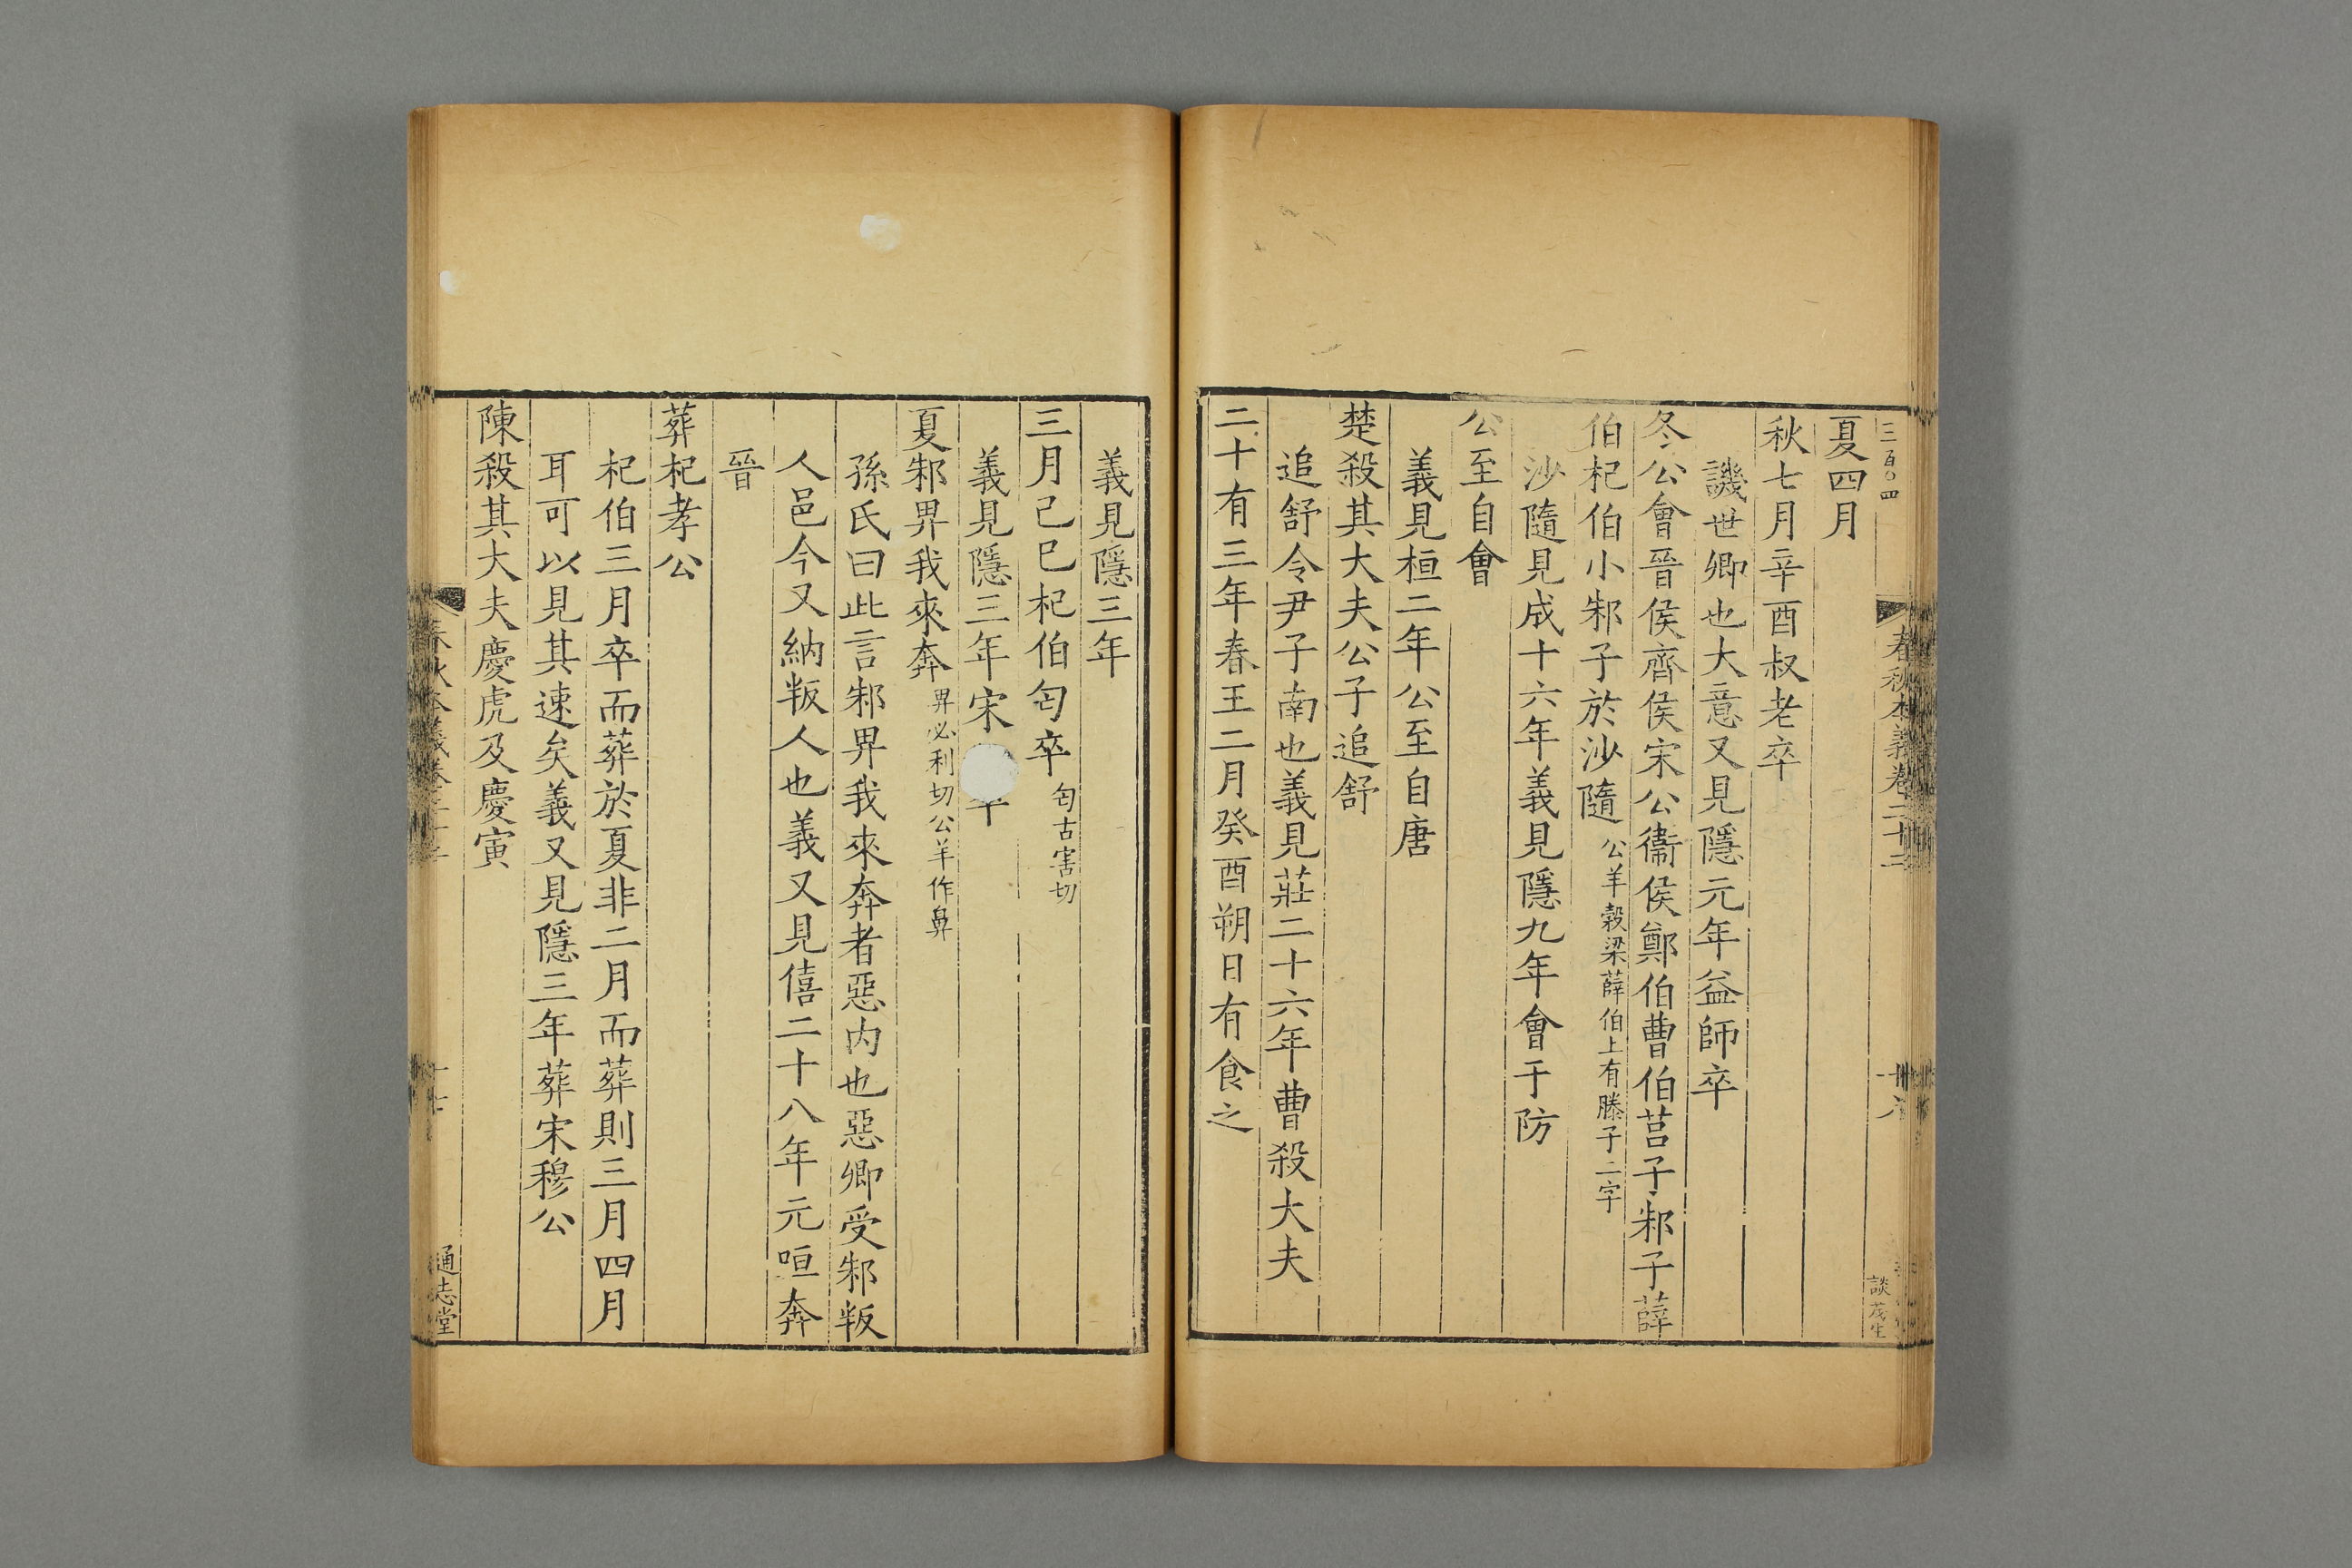 三百〇四
夏四月
秋七月辛酉叔老卒
譏世卿也大意又見隱元年益師卒
冬公會晉侯齊侯宋公衞侯鄭伯曹伯莒子邾子薛
伯杞伯小邾子於沙隨公羊穀梁薛伯上有滕子二字
沙隨見成十六年義見隱九年會于防
公至自會
義見桓二年公至自唐
楚殺其大夫公子追舒
追舒令尹子南也義見莊二十六年曹殺大夫
二十有三年春王二月癸酉朔日有食之
春秋本義卷二十二
談茂生
義見隱三年
三月己巳杞伯匄卒匄古害切
義見隱三年宋卒
夏邾畀我來奔畀必利切公羊作鼻
孫氏曰此言邾畀我來奔者惡内也惡卿受邾叛
人邑今又納叛人也義又見僖二十八年元咺奔
晉
葬杞孝公
杞伯三月卒而葬於夏非二月而葬則三月四月
耳可以見其速矣義又見隱三年葬宋穆公
陳殺其大夫慶虎及慶寅
通志堂